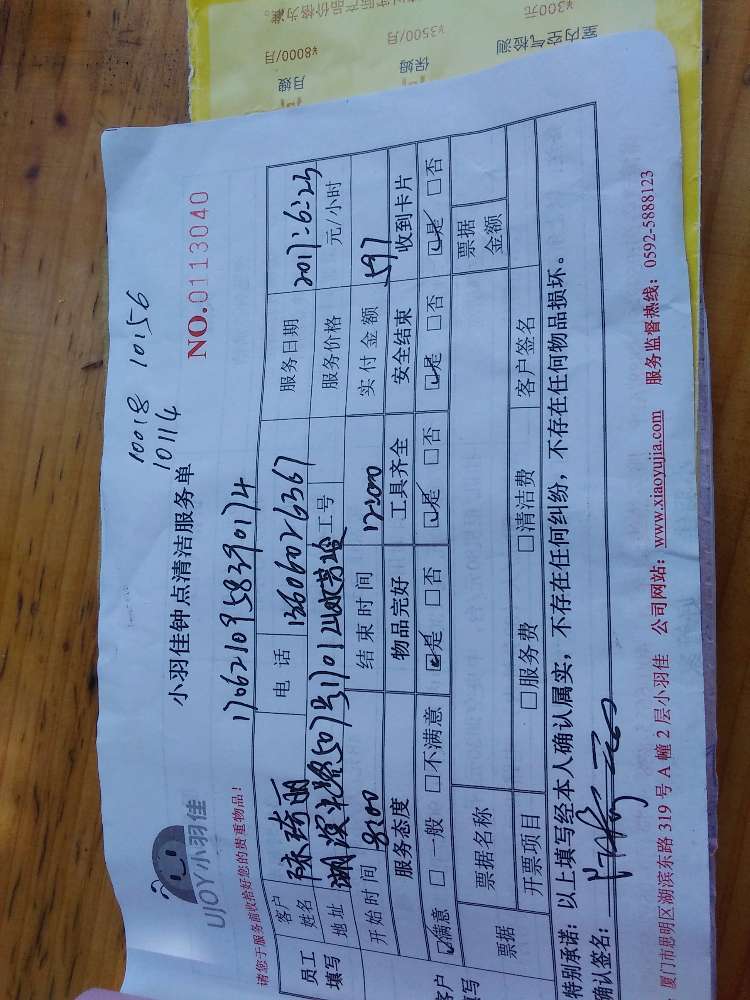 10018 10156
10114
UJOY小羽佳
小羽佳钟点清洁服务单
NO.0113040
请您于服务前收拾好您的贵重物品!
1706210958390174
员工填写
客户姓名 陈琦丽 电话 13606026367 服务日期 2017-6-23
地址 工号 服务价格 元/小时
开始时间 8:00 结束时间 实付金额 597
服务态度 物品完好 工具齐全 安全结束 收到卡片
☑满意 □一般 □不满意 ☑是 □否 ☑是 □否 ☑是 □否 ☑是 □否
客户填写
票据 票据名称 票据金额
开票项目 □服务费 □清洁费 客户签名
特别承诺: 以上填写经本人确认属实,不存在任何纠纷,不存在任何物品损坏。
确认签名:
厦门市思明区湖滨东路 319 号 A 幢 2 层小羽佳 公司网站: www.xiaoyujia.com 服务监督热线: 0592-5888123
月嫂 保姆 室内空气检测
¥8000/月 ¥3500/月 ¥300元
实际产品价格为准。